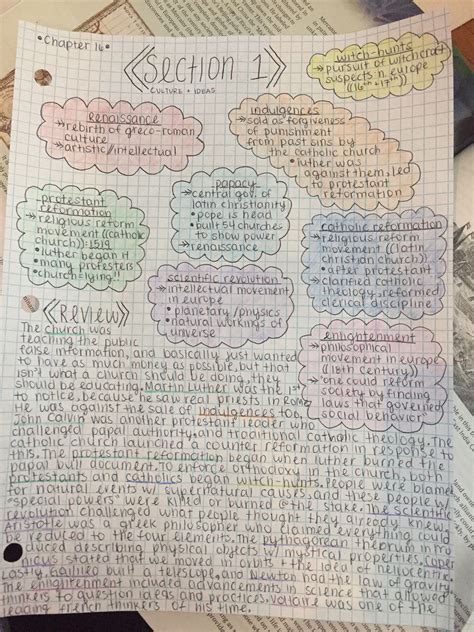 •Chapter 16•
Section 1
CULTURE + IDEAS
witch-hunts
→pursuit of witchcraft
suspects n europe
((16th + 17th))
Renaissance
→rebirth of greco-roman
culture
→artistic/intellectual
indulgences
→sold as forgiveness
of punishment
from past sins by
the catholic church
•luther was
against them, led
to protestant
reformation
papacy
→central gov. of
latin christianity
•pope is head
•built St churches
to show power
→renaissance
protestant
reformation
→religious reform
movement (catholic
church))·1519
•luther began it
•many protesters
•church=lying!!
catholic reformation
→religious reform
movement ((latin
christian church))
•after protestant
→clarified catholic
theology, reformed
clerical discipline
scientific revolution
→intellectual movement
in europe
•planetary/physics
•natural workings of
universe
enlightenment
→philosophical
movement in europe
((18th century))
→one could reform
society by finding
laws that governed
social behavior
Review
The church was
teaching the public
false information, and basically just wanted
to have as much money as possible, but that
isn't what a church should be doing, they
should be educating. Martin Luther was the 1st
to notice, because he saw real priests in Rome.
He was against the sale of indulgences too.
John Calvin was another protestant leader who
challenged papal authority, and traditional catholic theology. The
catholic church launched a counter reformation in response to
this. The protestant reformation began when luther burned the
papal bull document. To enforce orthodoxy in the church, both
protestants and catholics began witch-hunts. People were blamed
for natural events w/ supernatural causes, and these people w/
"special powers" were killed or burned @ the stake. The scientific
revolution challenged what people thought they already knew.
Aristotle was a greek philosopher who claimed everything could
be reduced to the four elements. The pythagorean theorum intro
duced describing physical objects w/ mystical properties. Coper
nicus stated that we moved in orbits + the idea of heliocentric.
Lastly, Galileo built a telescope, and Newton had the law of gravity.
The enlightenment included advancements in science that allowed
thinkers to question ideas and practices. Voltaire was one of the
leading french thinkers of his time.